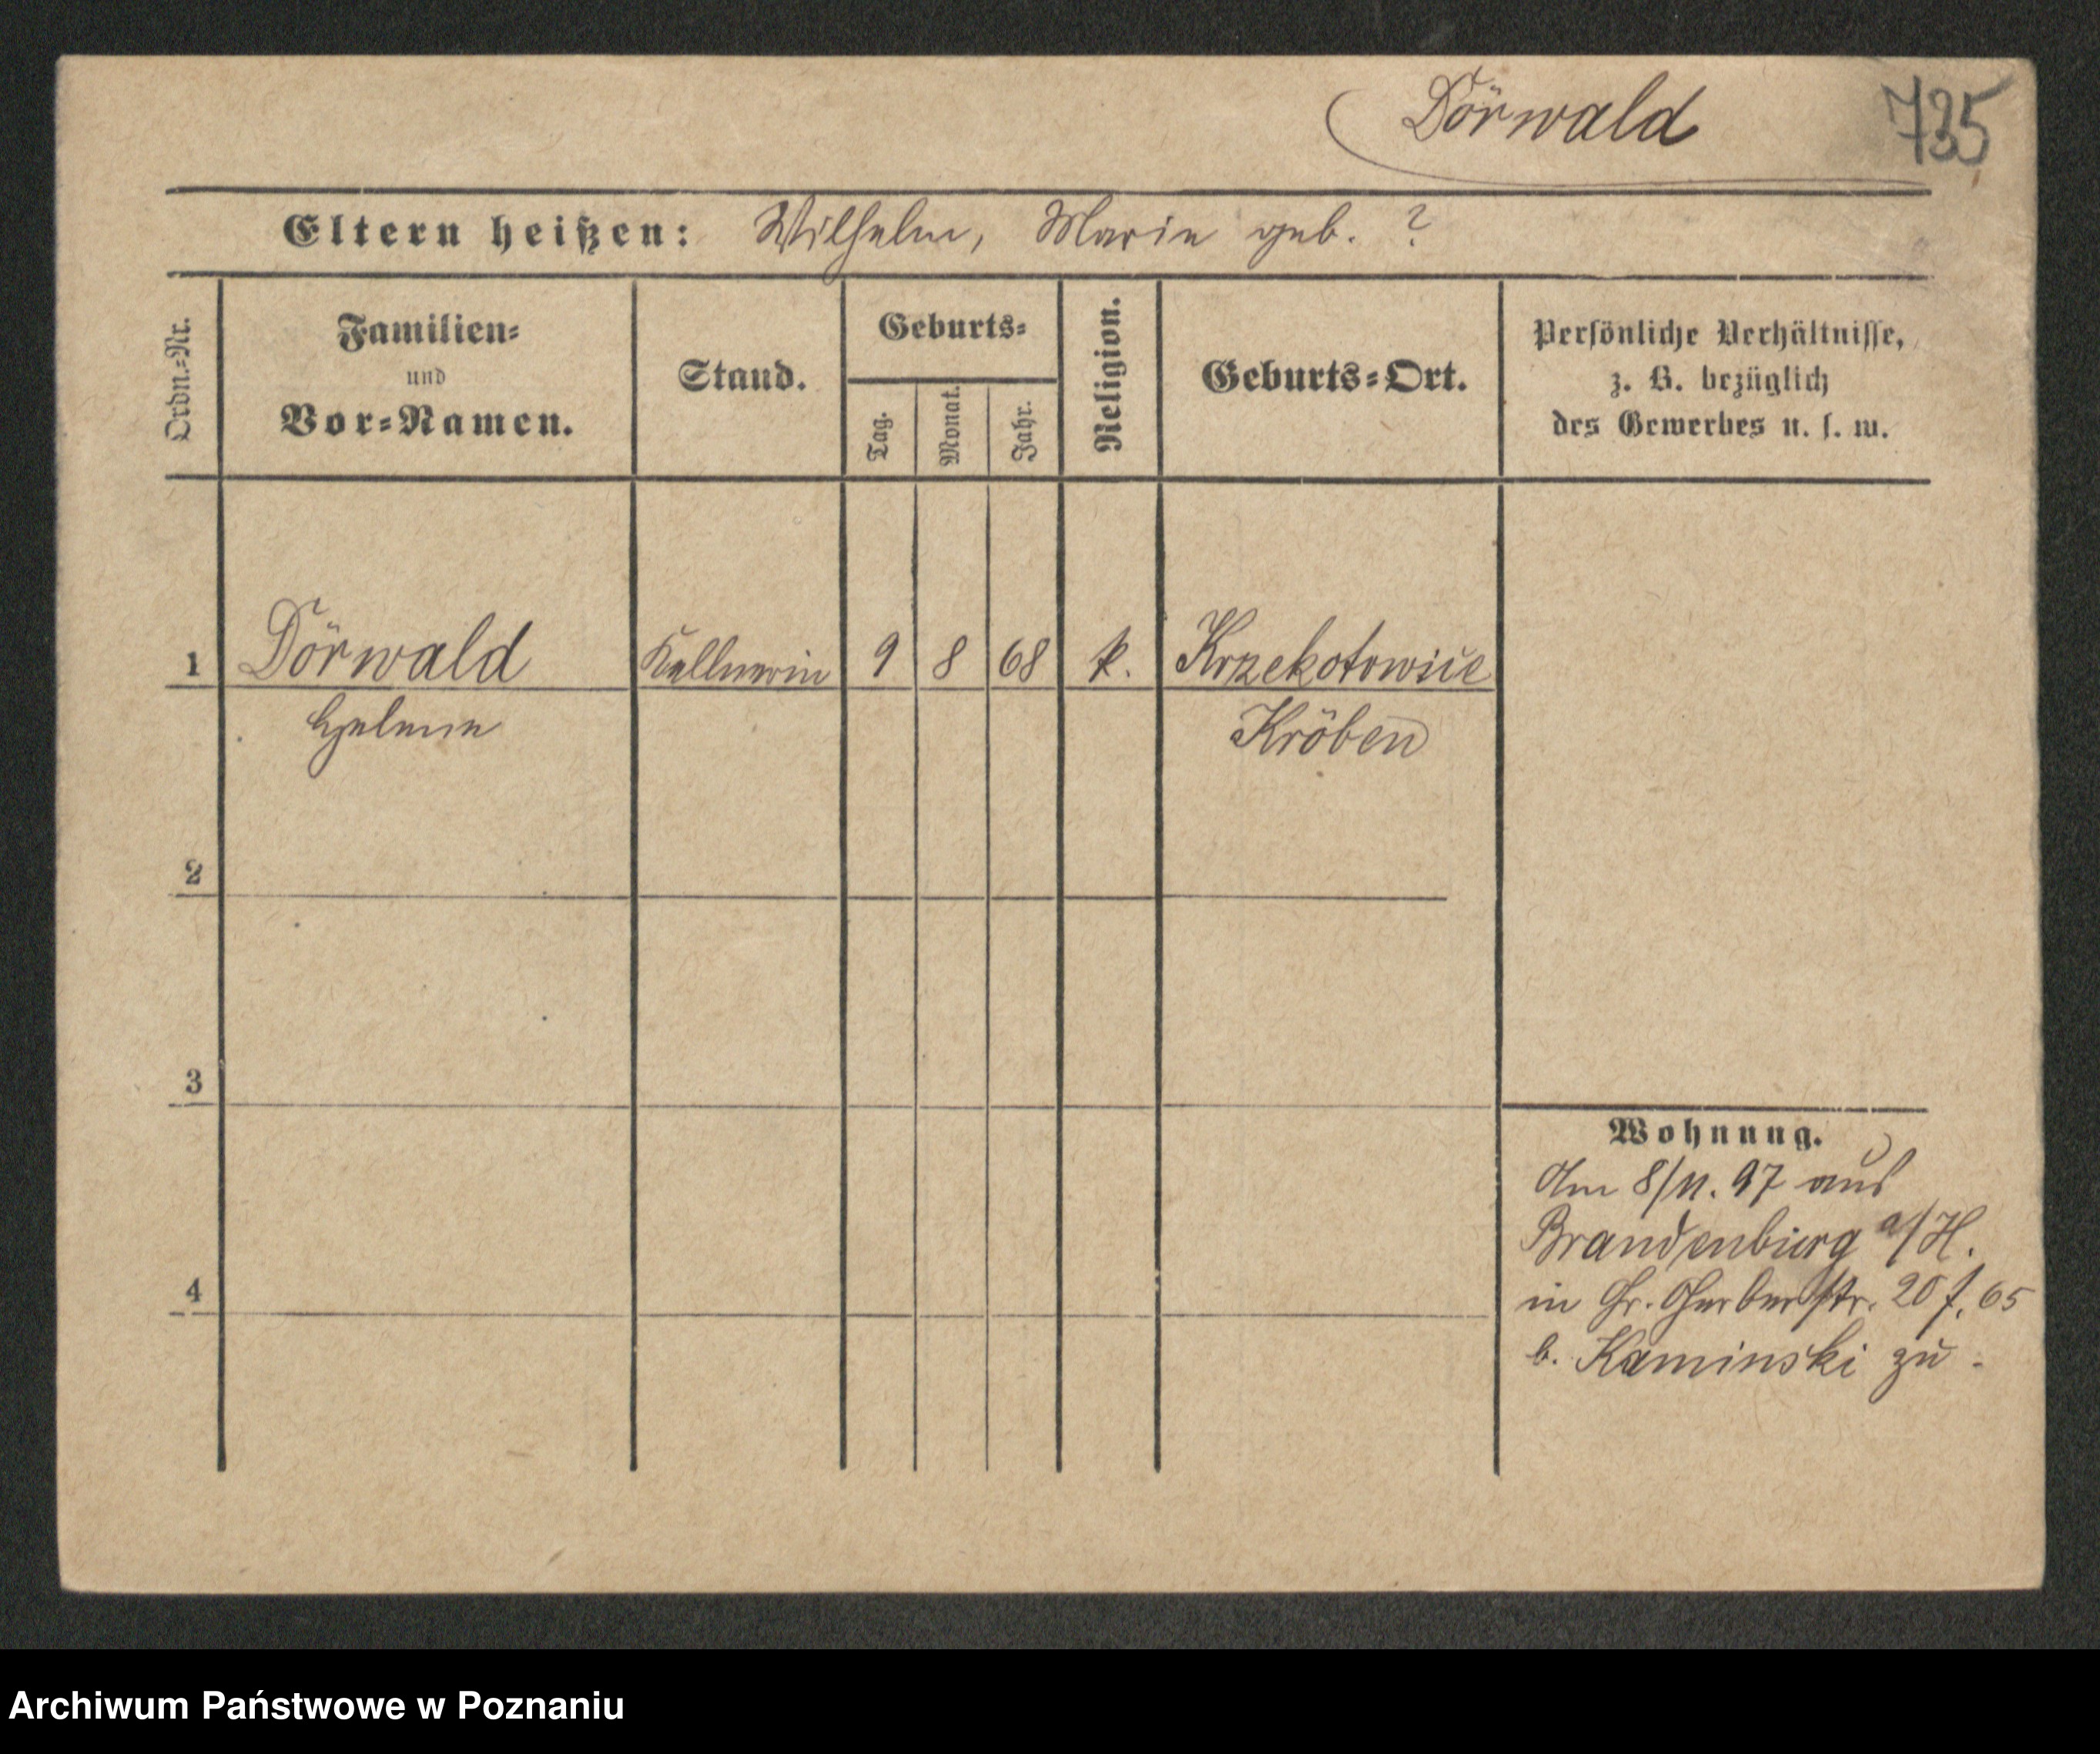 Dörwald 735
Eltern heißen: Wilhelm, Marie geb. ?
Ordn.-Nr.
Familien-
und
Vor-Namen.
Stand.
Geburts-
Tag.
Monat.
Jahr.
Religion.
Geburts-Ort.
Persönliche Verhältnisse,
z. B. bezüglich
des Gewerbes u. s. w.
1 Dörwald Kellnerin 9 8 68 k. Krzekotowice
Helene Kröben
2
3
4
Wohnung.
Am 8/11. 97 aus
Brandenburg a/H.
in Gr. Gerberstr. 20 f. 65
b. Kaminski zu.
Archiwum Państwowe w Poznaniu